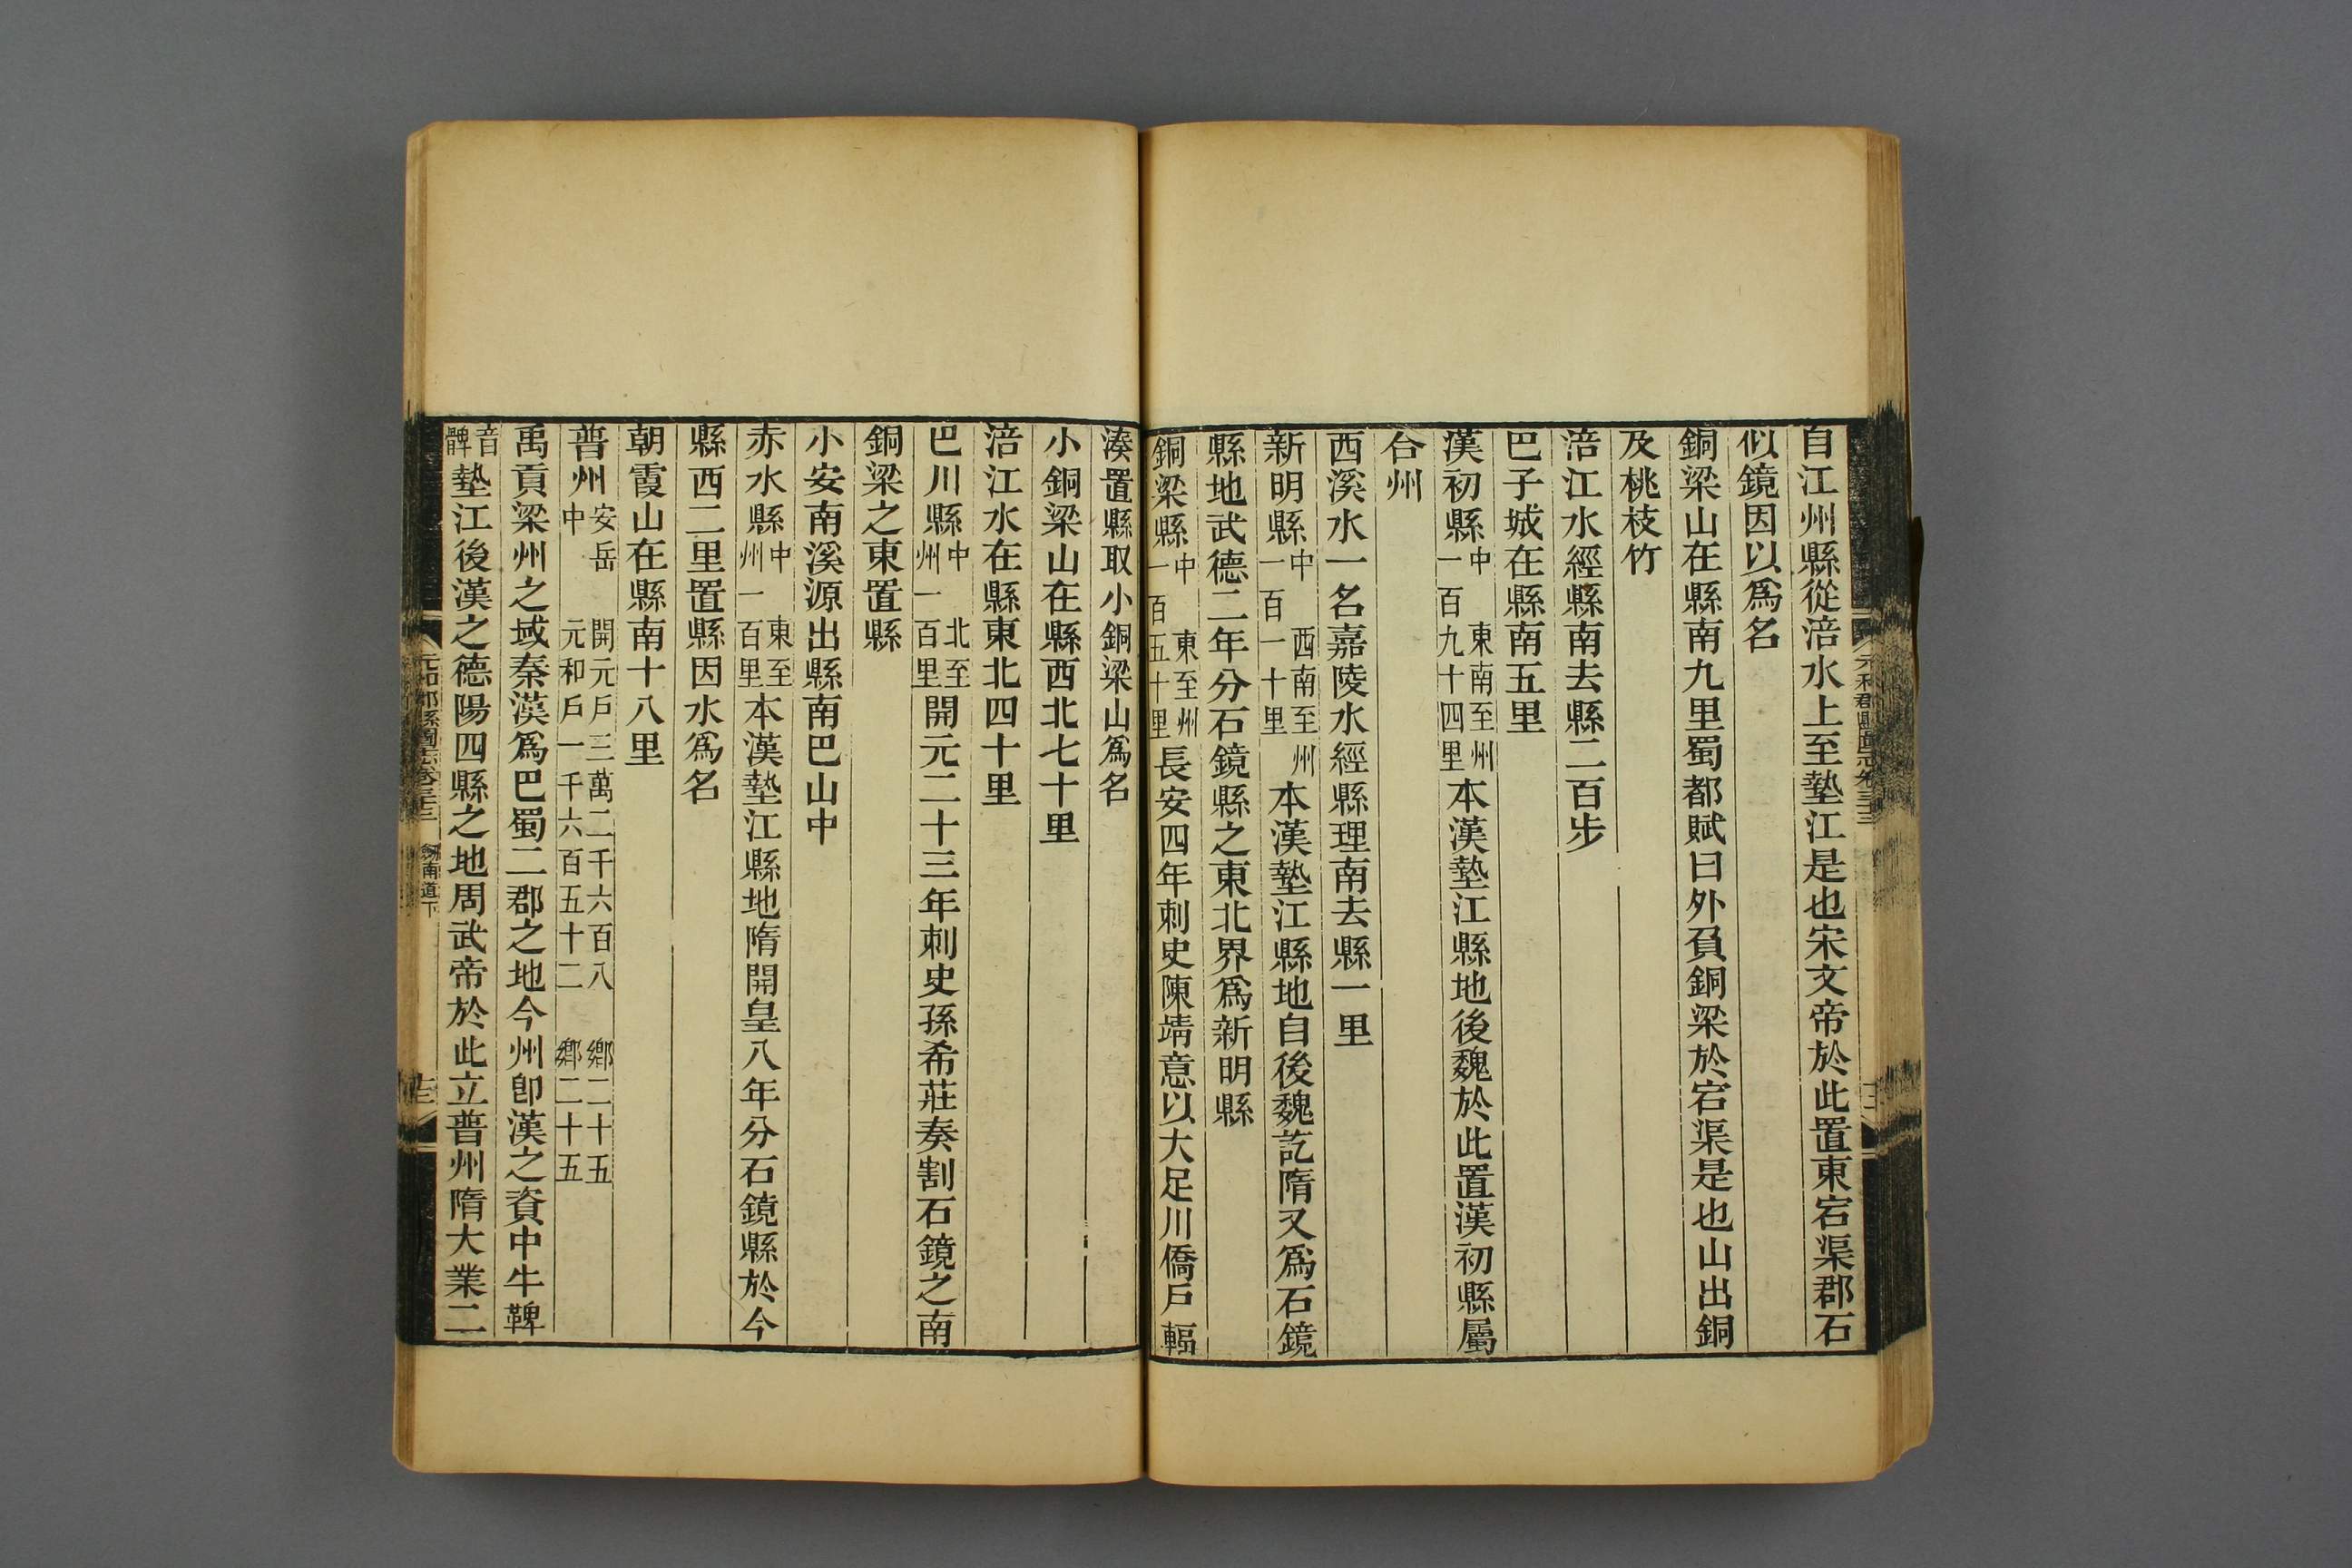 自江州縣從涪水上至墊江是也宋文帝於此置東宕渠郡石
似鏡因以爲名
銅梁山在縣南九里蜀都賦曰外負銅梁於宕渠是也山出銅
及桃枝竹
涪江水經縣南去縣二百步
巴子城在縣南五里
漢初縣中 東南至州一百九十四里本漢墊江縣地後魏於此置漢初縣屬
合州
西溪水一名嘉陵水經縣理南去縣一里
新明縣中 西南至州一百一十里本漢墊江縣地自後魏訖隋又爲石鏡
縣地武德二年分石鏡縣之東北界爲新明縣
銅梁縣中 東至州一百五十里長安四年刺史陳靖意以大足川僑戶輻
湊置縣取小銅梁山爲名
小銅梁山在縣西北七十里
涪江水在縣東北四十里
巴川縣中 北至州一百里開元二十三年刺史孫希莊奏割石鏡之南
銅梁之東置縣
小安南溪源出縣南巴山中
赤水縣中 東至州一百里本漢墊江縣地隋開皇八年分石鏡縣於今
縣西二里置縣因水爲名
朝霞山在縣南十八里
普州安岳中 開元戶三萬二千六百八 鄉二十五 元和戶一千六百五十二 鄉二十五
禹貢梁州之域秦漢爲巴蜀二郡之地今州卽漢之資中牛鞞
音髀墊江後漢之德陽四縣之地周武帝於此立普州隋大業二
元和郡縣圖志卷三十三 劍南道下